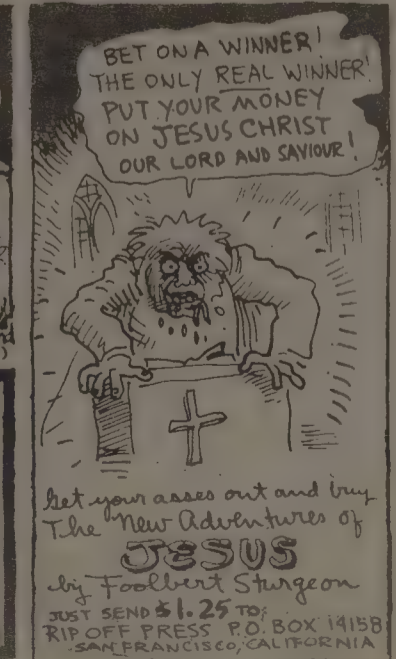 BET ON A WINNER!
THE ONLY REAL WINNER!
PUT YOUR MONEY
ON JESUS CHRIST
OUR LORD AND SAVIOUR!
Get your asses out and buy
The New Adventures of
JESUS
by Foolbert Sturgeon
JUST SEND $1.25 TO:
RIP OFF PRESS P.O. BOX 14158
SAN FRANCISCO, CALIFORNIA